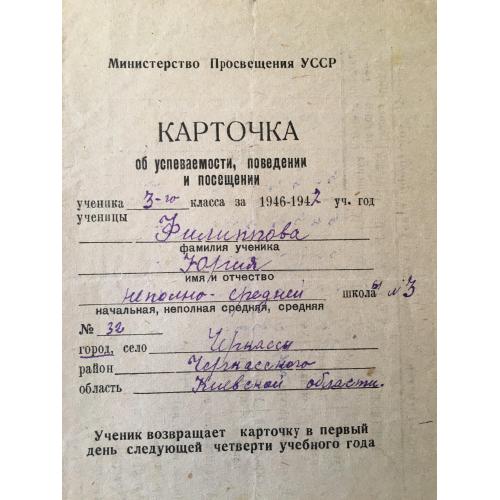 Министерство Просвещения УССР
КАРТОЧКА
об успеваемости, поведении
и посещении
ученика 3-го класса за 1946-1947 уч. год
ученицы
Филиппова
фамилия ученика
Юрия
имя и отчество
неполно-средней школаы №3
начальная, неполная средняя, средняя
№ 32
город, село Черкассы
район Черкасского
область Киевской области.
Ученик возвращает карточку в первый
день следующей четверти учебного года